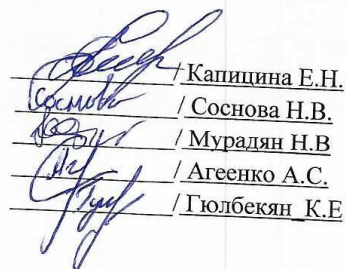 / Капицина Е.Н.
/ Соснова Н.В.
/ Мурадян Н.В
/ Агеенко А.С.
/ Гюлбекян_К.Е